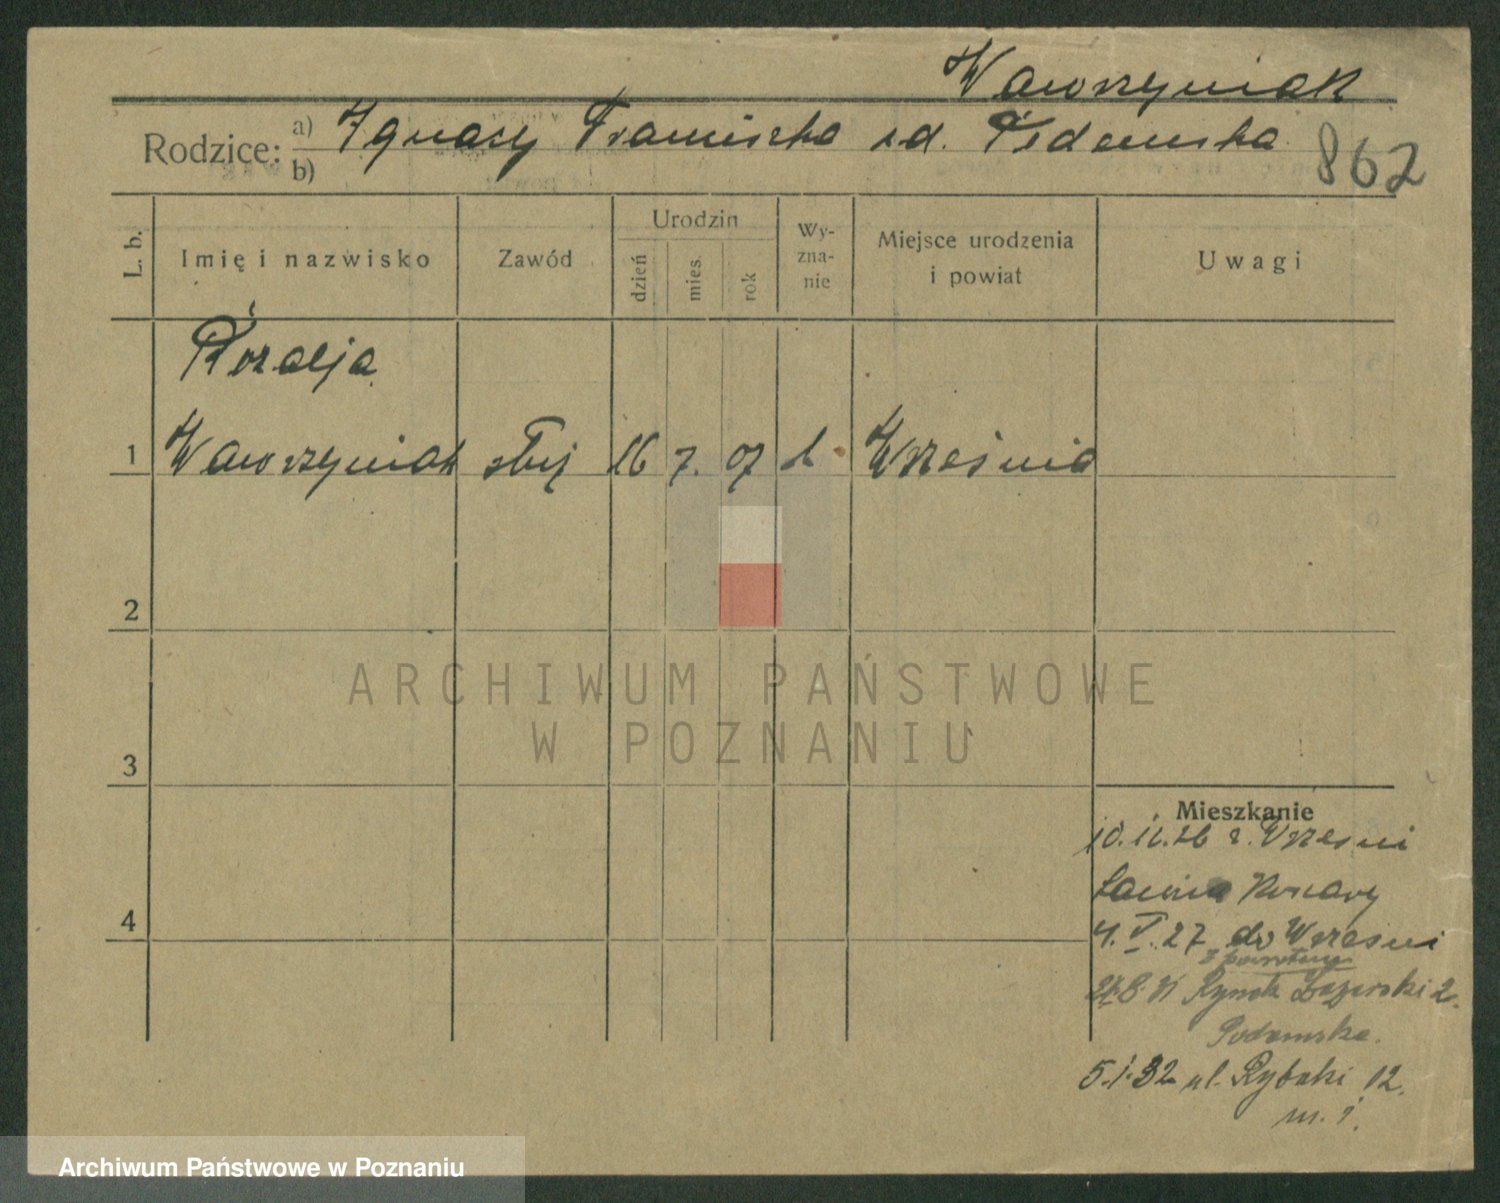 Wawrzyniak
Rodzice: a) Ignacy Franciszka zd.
b)
862
L. b.
Imię i nazwisko
Zawód
Urodzin
dzień
mies.
rok
Wy-
zna-
nie
Miejsce urodzenia
i powiat
Uwagi
Rozalja
1 Wawrzyniak służ 16 7. 07 k Września
2
3
4
ARCHIWUM PAŃSTWOWE
W POZNANIU
Mieszkanie
10.11.26 z Wrześni
4. V. 27 do Wrześni
z powrotem
Rynek Łazarski 2.
5.1.32 ul. Rybaki 12.
m. 1.
Archiwum Państwowe w Poznaniu